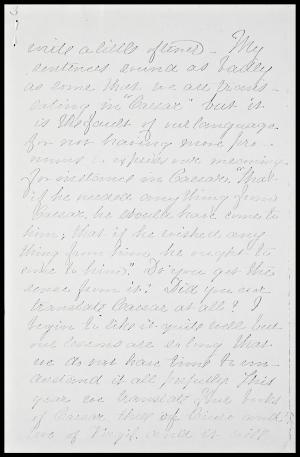 write a little oftener. My
sentences sound as badly
as some that we are trans-
lating in "Caesar" but it
is the fault of our language
for not having more pro-
nouns to express our meaning
for instance in Caesar, "that
if he needed anything from
Caesar he would have come to
him; that if he wished any
thing from him he ought to
come to him." Do you get the
sense from it? Did you ever
translate Caesar at all? I
begin to like it quite well but
our lessons are so long that
we do not have time to un-
derstand it all perfectly. This
year we translate four books
of Caesar three of Cicero and
two of Virgil. and it will